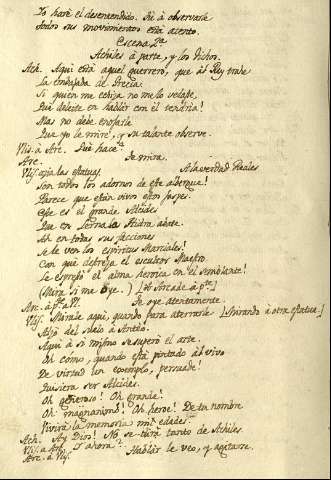 Yo haré el desentendido. Ve à observarle
todos sus movimientos está atento.
Escena 2.ª
Achiles à parte, y los Dichos.
Ach. Aqui está aquel guerrero, que al Rey trahe
la embajada de Grecia.
Si quien me no me lo vedase,
Que deleite en hablar con el tendria!
Mas no debe enojarla
Que yo le mire, y su talante observe.
Ulis. à Arc. Què hace?
Arc. Te mira.
Ulis. à las estatuas. A la verdad Reales
Son todos los adornos de este albergue!
Parece que están vivos estos jaspes.
Este es el grande Alcides
Que en Lerna la Hidra abate.
Ah en todas sus facciones
Se le ven los espiritus Marciales!
Con què destreza el escultor Maestro
Le expresó el alma heroica en el semblante!
(Mira si me oye.) [à Arcade à pte.]
Arc. à pte. à Ul. Te oye atentamente.
Ulis. Mirale aqui, quando para aterrarle [Mirando à otra estatua.]
Alzó del suelo à Antéo.
Aqui à si mismo se superó el arte.
Oh cómo, quando está pintado al vivo
De virtud un exemplo, persuade!
Quisiera ser Alcides.
Oh generoso! Oh grande!
Oh magnanimo! Oh heroe! De tu nombre
Vivirà la memoria mil edades.
Ach. Ay Dios! No se dirá tanto de Achiles
Ulis. à Arc. Y ahora?
Arc. à Ulis. Hablar le veo, y agitarse.